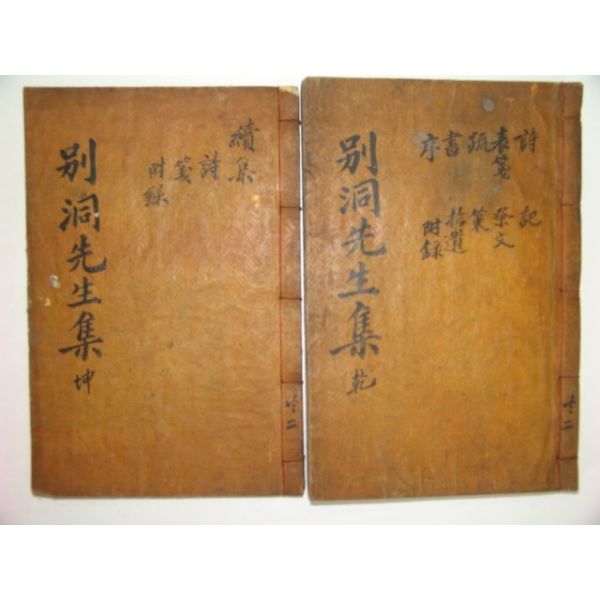 詩
表箋
疏
書
序
記
祭文
策
拾遺
附錄
別洞先生集 乾
共二
續集
詩
箋
附錄
別洞先生集 坤
共二